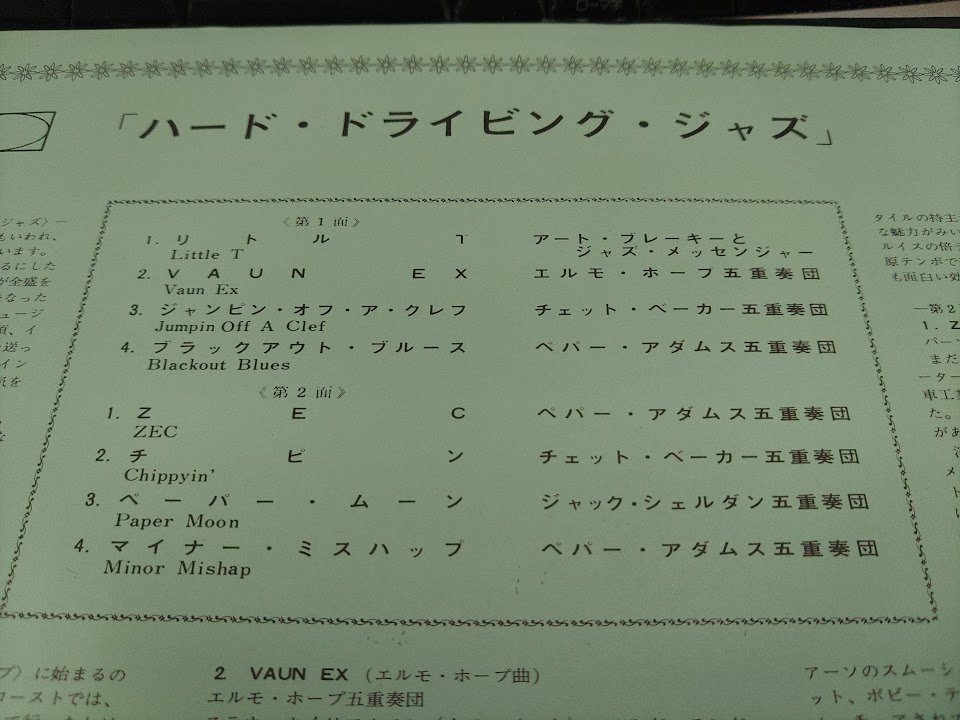 「ハード・ドライビング・ジャズ」
《第1面》
1. リトル T アート・ブレーキーと
ジャズ・メッセンジャー
Little T
2. VAUN EX エルモ・ホープ五重奏団
Vaun Ex
3. ジャンピン・オフ・ア・クレフ チェット・ベーカー五重奏団
Jumpin Off A Clef
4. ブラックアウト・ブルース ペパー・アダムス五重奏団
Blackout Blues
《第2面》
1. ZEC ペパー・アダムス五重奏団
ZEC
2. チピン チェット・ベーカー五重奏団
Chippyin'
3. ペーパー・ムーン ジャック・シェルダン五重奏団
Paper Moon
4. マイナー・ミスハップ ペパー・アダムス五重奏団
Minor Mishap
ジャズ〉―
もいわれ、
います。
るにした
が全盛を
なった
ュージ
頃、イ
送っ
イン
気を
タイルの持主
な魅力がみい
ルイスの倍テ
原テンポで
も面白い効
―第2
1. Z
パーソ
まだ
ーター
車工業
た。
があ
プ〉に始まるの
ローストでは、
2 VAUN EX (エルモ・ホープ曲)
エルモ・ホープ五重奏団
アーソのスムーシ
ット、ボビー・テ